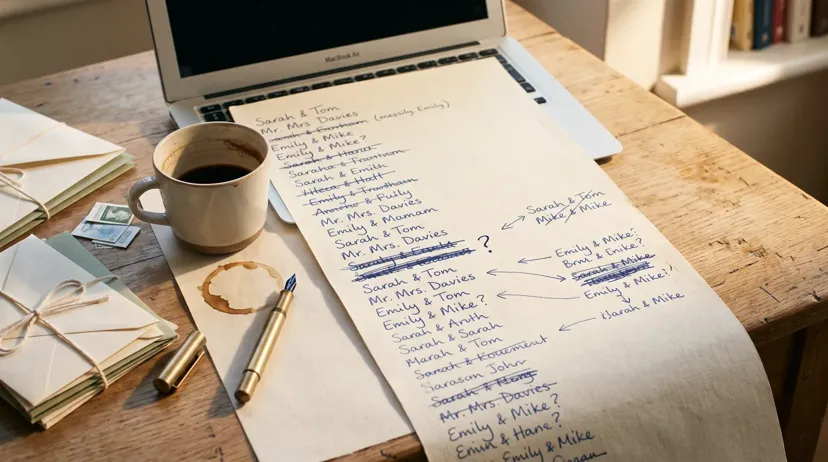 MacBook Air
Sarah & Tom
Mr. Mrs. Davies
Sarah & (messily Emily)
Emily & Mike
Emily & Mike?
Sarah & Hana
Saraha &
Sarah & Emih
& Hatt
Emily &
& Fully
Mr. Mrs. Davies
Emily & Mamam
Sarah & Tom
Mr. Mrs. Davies
?
Sarah & Tom
Mr. Mrs. Davies
Emily & Tom
Emily & Mike?
Sarah & Anth
Sarah & Sarah
Marah & Tom
Sarah & Kouement
Sarason John
Sarah &
Mr. Mrs. Davies
Emily & Mike?
Emin & Hane?
Emily & Mike
Sarah & Tom
Mike & Mike
Emily & Mike?
& Enike?
Sarah & Mike
Emily & Mike?
Sarah & Mike